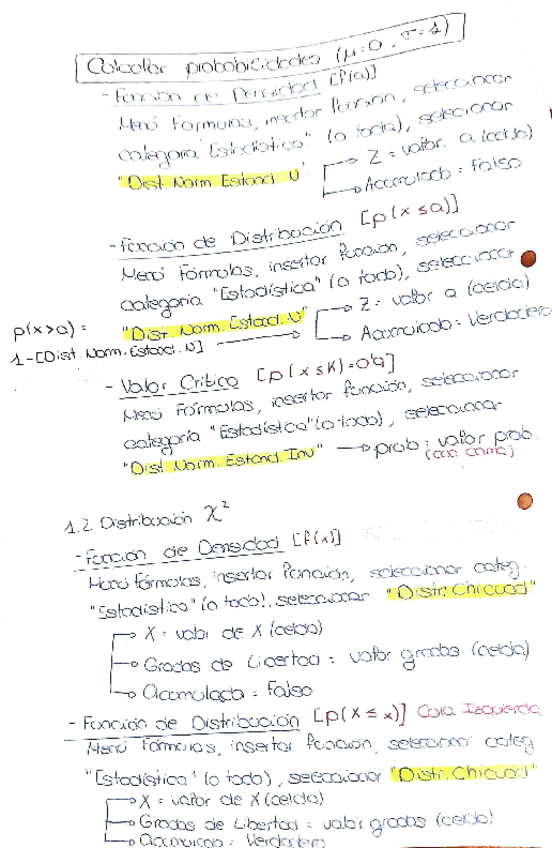 Calcular probabilidades (μ=0, σ=1)
- Función de Densidad [f(a)]
Menú Formulas, insertar función, seleccionar
categoría "Estadística" (o todo), selecionar
"Dist. Norm. Estand. N" → Z = valor a (celda)
→ Acomulado: Falso
- Función de Distribución [p(x ≤ a)]
Menú Fórmulas, insertar función, seleccionar
categoría "Estadística" (o todo), seleccionar
p(x>a) = "Dist. Norm. Estand. N" → Z = valor a (celda)
1-[Dist. Norm. Estand. N] → Acomulado: Verdadero
- Valor Crítico [p(x ≤ K) = 0'a]
Menú Fórmulas, insertar función, seleccionar
categoría "Estadística" (o todo), seleccionar
"Dist. Norm. Estand. Inv" → prob: valor prob.
(con coma)
1.2. Distribución χ²
- Función de Densidad [f(x)]
Menú fórmulas, insertar función, seleccionar categ.
"Estadística" (o todo), seleccionar "Distr. Chicuad"
→ X = valor de X (celda)
→ Grados de Libertad: valor grados (celda)
→ Acomulado = Falso
- Función de Distribución [p(X ≤ x)] Cola Izquierda
Menú Formulas, insertar función, seleccionar categ
"Estadística" (o todo), seleccionar "Distr. Chicuad"
→ X = valor de X (celda)
→ Grados de Libertad: valor grados (celda)
→ Acomulado = Verdadero